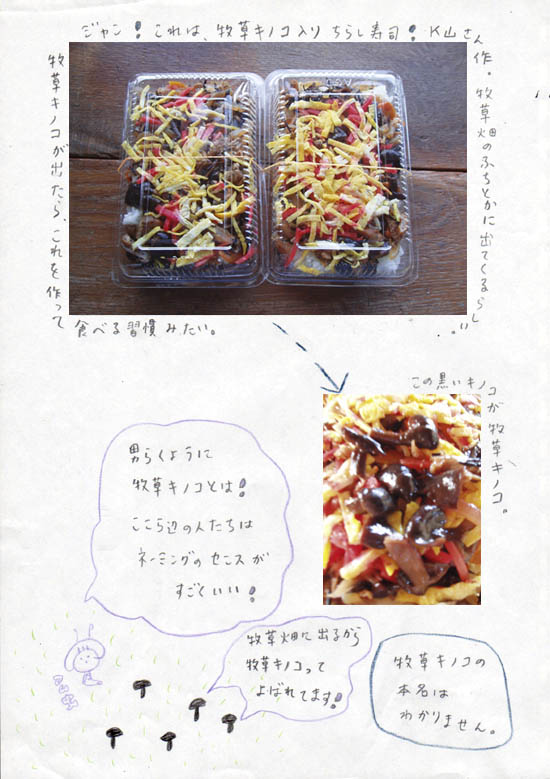 ジャン！これは、牧草キノコ入りちらし寿司！K山さん
作。牧草畑のふちとかに出てくるらしい。
牧草キノコが出たら、これを作って
食べる習慣みたい。
この黒いキノコ
が牧草キノコ。
牧草キノコとは！
ここら辺の人たちは
ネーミングのセンスが
すごくいい！
牧草畑に出るから
牧草キノコって
よばれてます！
牧草キノコの
本名は
わかりません。